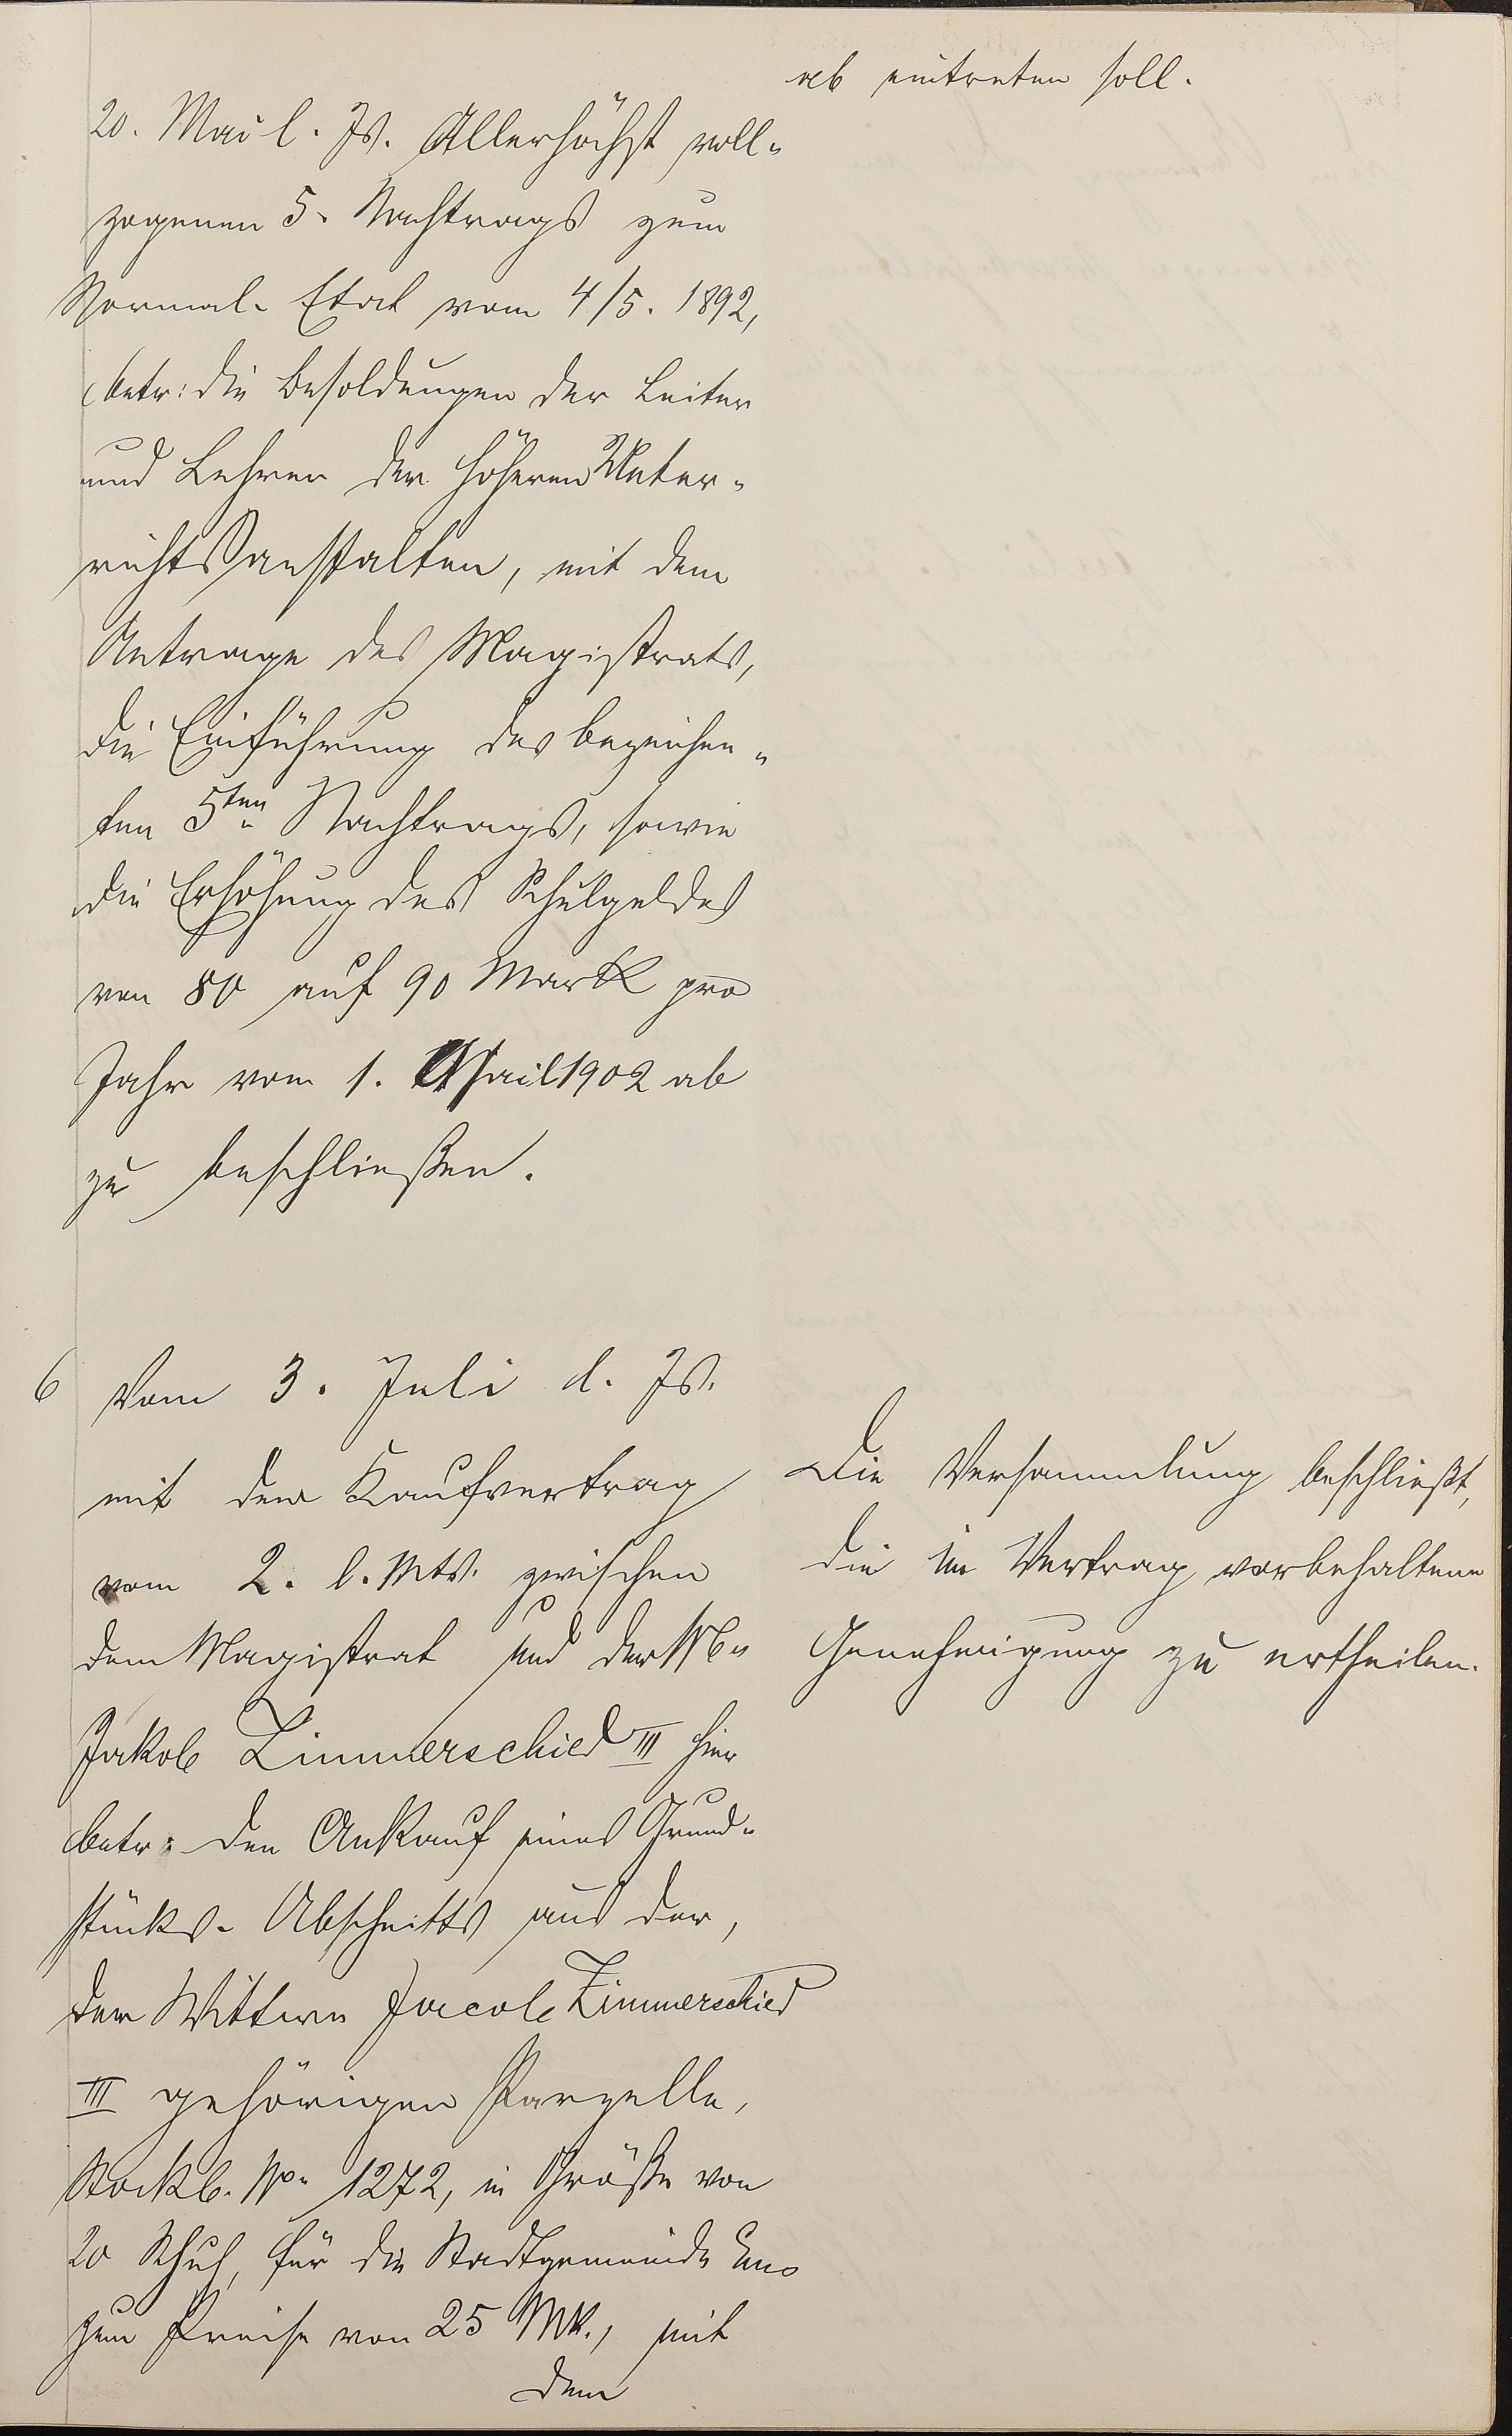 20. Mai l. Js. Allerhöchst voll-
zogenen 5. Nachtrags zum
Normal-Etat vom 4/5. 1892,
betr: die Besoldungen der Leiter
und Lehrer der höheren Unter-
richtsanstalten, mit dem
Antrage des Magistrats,
die Einführung des bezeichne-
ten 5ten Nachtrags, sowie
die Erhöhung des Schulgeldes
von 80 auf 90 Mark pro
Jahr vom 1. April 1902 ab
zu beschließen.
ab eintreten soll.
6 Vom 3. Juli d. Js.
mit dem Kaufvertrag
vom 2. l. Mts. zwischen
dem Magistrat und der We
Jakob Zimmerschied III hier
betr: den Ankauf eines Grund-
stücks-Abschnitts aus der,
der Wittwe Jacob Zimmerschied
III gehörigen Parzelle,
Stockb. No 1272, in Größe von
20 Schuh, für die Stadtgemeinde Ems
zum Preise von 25 Mk., mit
dem
Die Versammlung beschließt,
die im Vertrag vorbehaltene
Genehmigung zu ertheilen.